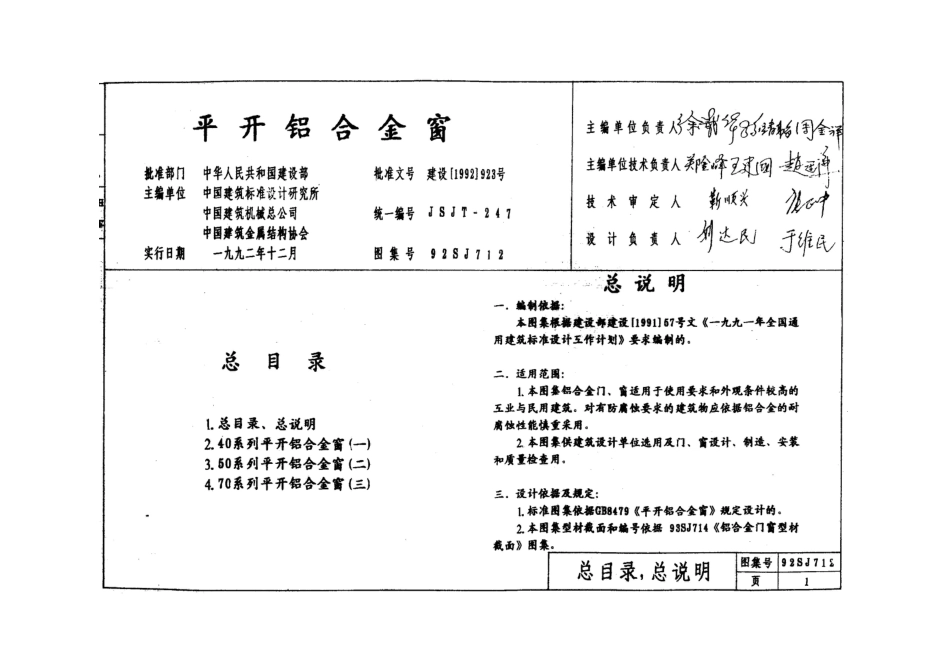 平开铝合金窗
批准部门 中华人民共和国建设部 批准文号 建设[1992]923号
主编单位 中国建筑标准设计研究所
中国建筑机械总公司 统一编号 JSJT-247
中国建筑金属结构协会
实行日期 一九九二年十二月 图集号 92SJ712
主编单位负责人
主编单位技术负责人 王建国
技术审定人 靳顺兴
设计负责人 刘达民 于维民
总目录
1.总目录、总说明
2.40系列平开铝合金窗(一)
3.50系列平开铝合金窗(二)
4.70系列平开铝合金窗(三)
总说明
一.编制依据:
本图集根据建设部建设[1991]57号文《一九九一年全国通
用建筑标准设计工作计划》要求编制的。
二.适用范围:
1.本图集铝合金门、窗适用于使用要求和外观条件较高的
工业与民用建筑。对有防腐蚀要求的建筑物应依据铝合金的耐
腐蚀性能慎重采用。
2.本图集供建筑设计单位选用及门、窗设计、制造、安装
和质量检查用。
三.设计依据及规定:
1.标准图集依据GB8479《平开铝合金窗》规定设计的。
2.本图集型材截面和编号依据 93SJ714《铝合金门窗型材
截面》图集。
总目录,总说明 图集号 92SJ712
页 1